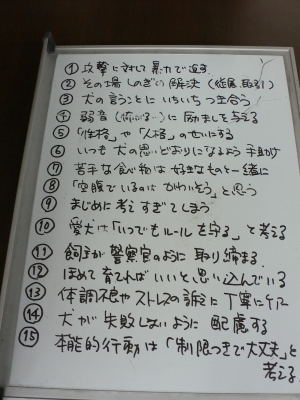 ① 攻撃に対して暴力で返す
② その場しのぎの解決（従属、取引）
③ 犬の言うことにいちいちつき合う
④ 弱音（…）に励まして与える
⑤ 「性格」や「人格」のせいにする
⑥ いつも犬の思いどおりになるよう手助け
⑦ 苦手な食べ物は好きなものと一緒に
⑧ 「空腹でいるのはかわいそう」と思う
⑨ まじめに考えすぎてしまう
⑩ 愛犬は「いつでもルールを守る」と考える
⑪ 飼主が警察官のように取り締まる
⑫ ほめて育てればいいと思い込んでいる
⑬ 体調不良やストレスの訴えに丁寧にケア
⑭ 犬が失敗しないように配慮する
⑮ 本能的行動は「制限つきで大丈夫」と
考える